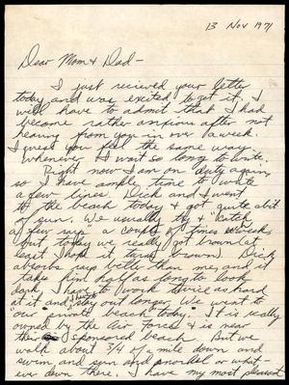 13 Nov 1971
Dear Mom & Dad-
I just recieved your letter
today and was excited to get it, I
will have to admit that I had
become rather anxious after not
hearing from you in over a week.
I guess you feel the same way
whenever I wait so long to write.
Right now I am on duty again
so I have ample time to write
a few lines. Dick and I went
to the beach today & got quite a bit
of sun. We usually try & "catch
a few rays" a couple of times a week
but today we really got brown (at
least I hope it turns brown). Dick
absorbs rays better than me, and it
takes him half as long to look
dark. I have to work twice as hard
at it and stay out longer. We went to
"our private beach today" It is really
owned by the Air Force & is near
their sponsored beach. But we
walk about 3/4 of a mile down and
swim and sun and
ever down there. I have my most pleasant